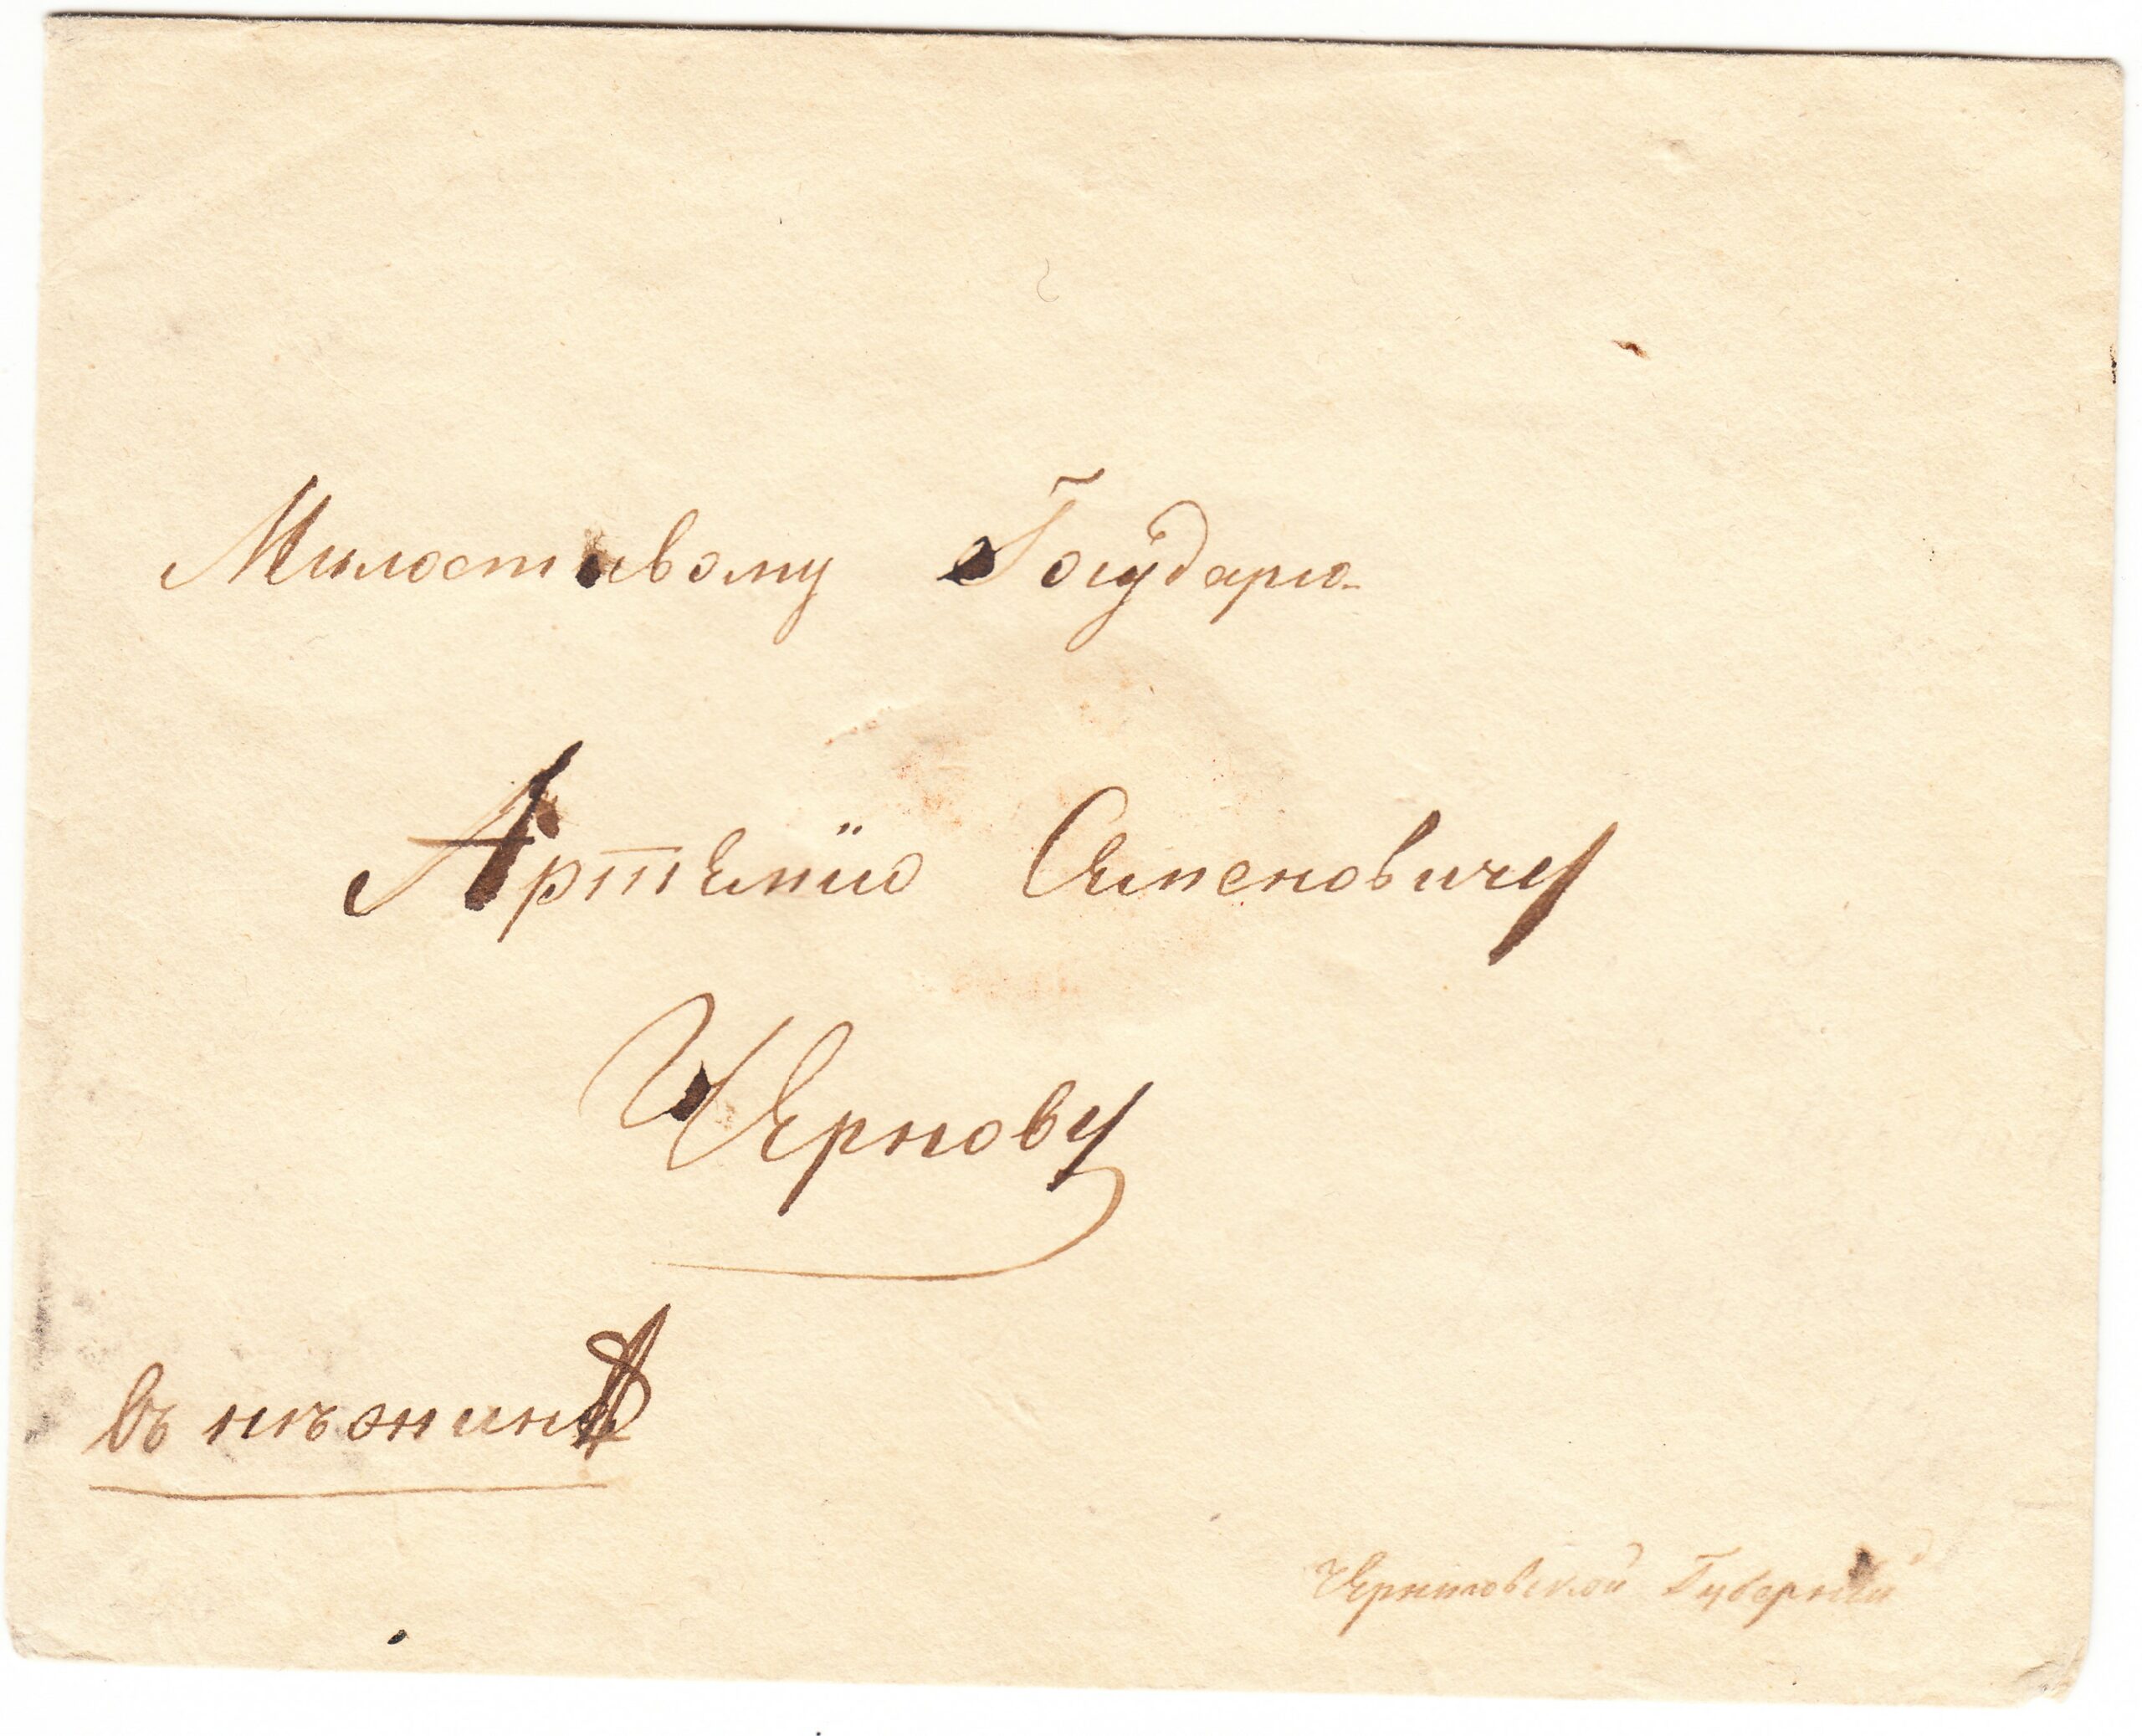 Милостивому Государю
Артемїю Семеновичу
Чернову
въ нѣжинѣ
Черниговской Губернїи